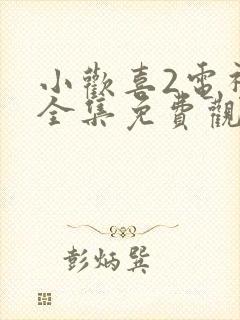 小歡喜2電視
全集免費觀
彭炳巽